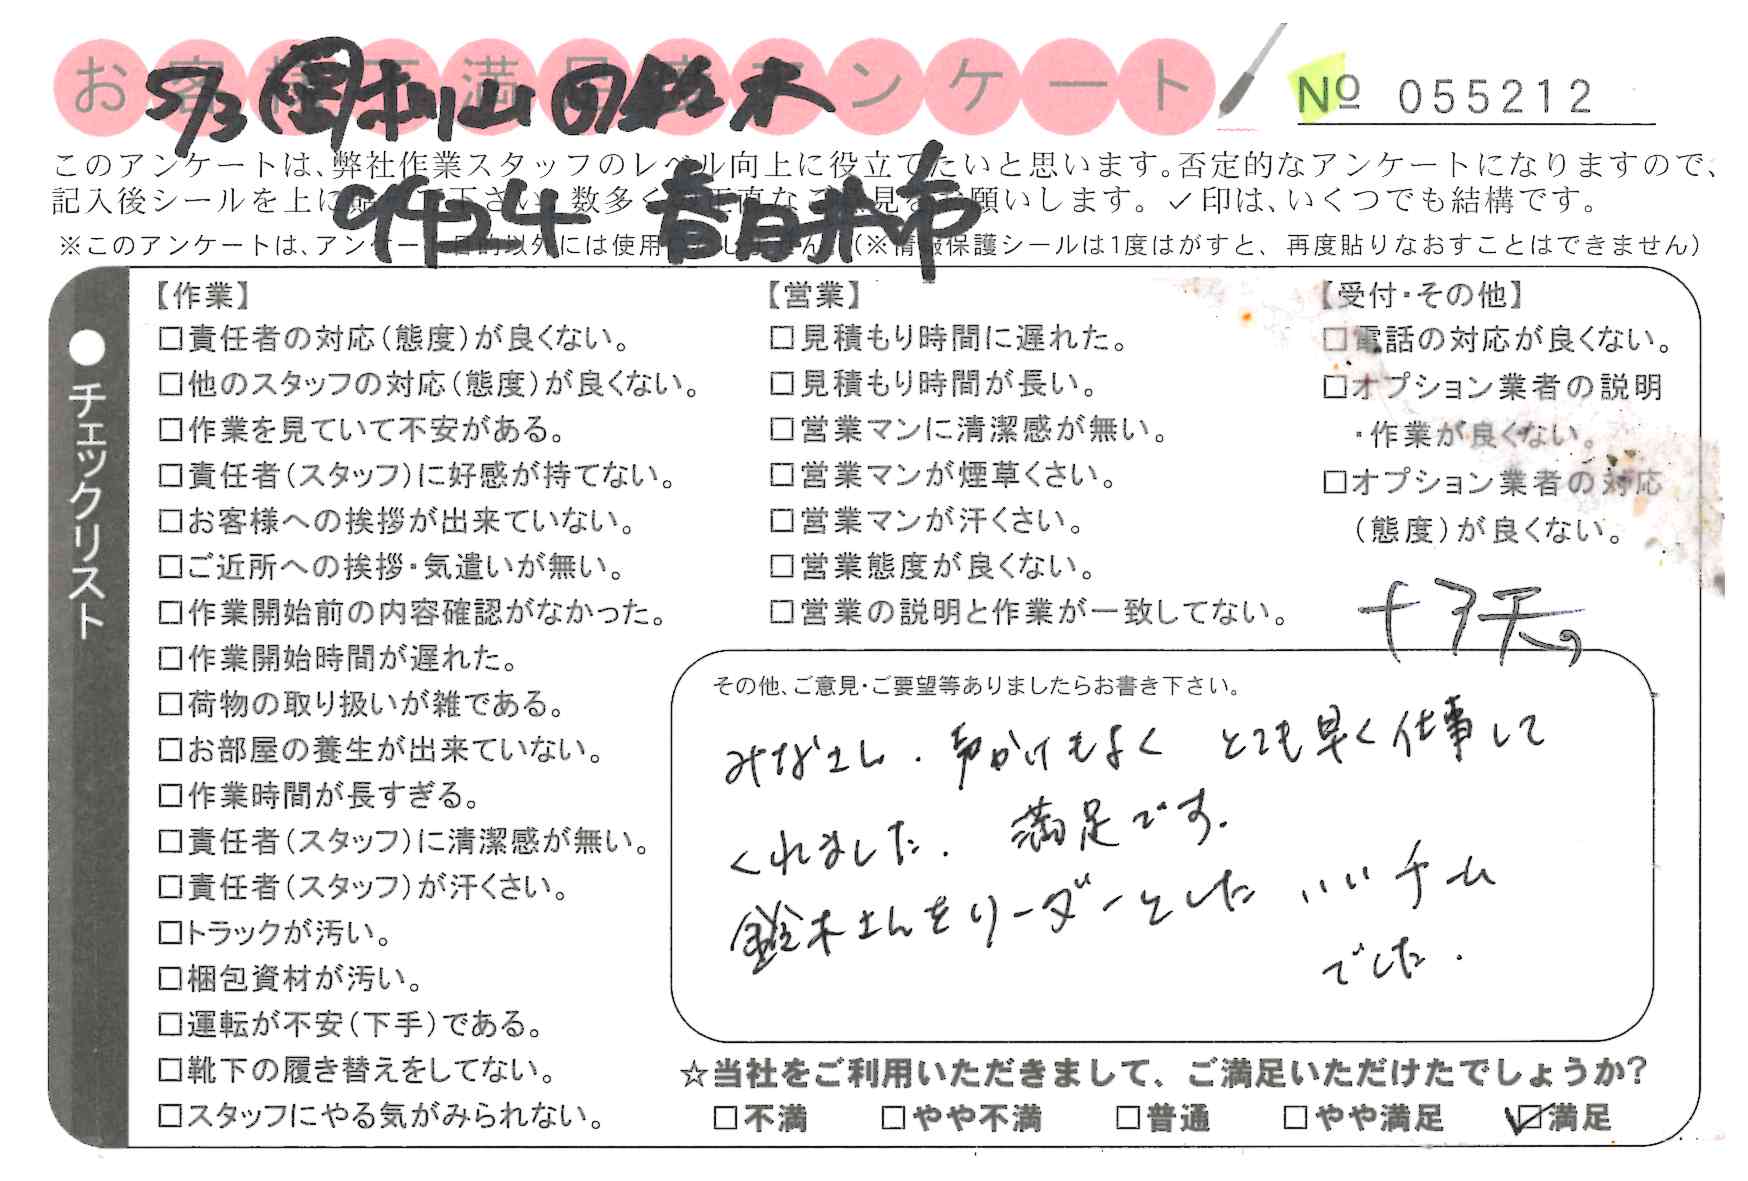 お客様不満足度アンケート
5/3 岡本 山田 鈴木
№ 055212
このアンケートは、弊社作業スタッフのレベル向上に役立てたいと思います。否定的なアンケートになりますので、
記入後シールを上に貼って下さい。数多くの正直なご意見をお願いします。✓印は、いくつでも結構です。
9424 春日井市
※このアンケートは、アンケート目的以外には使用いたしません。(※情報保護シールは1度はがすと、再度貼りなおすことはできません)
●チェックリスト
【作業】
□責任者の対応(態度)が良くない。
□他のスタッフの対応(態度)が良くない。
□作業を見ていて不安がある。
□責任者(スタッフ)に好感が持てない。
□お客様への挨拶が出来ていない。
□ご近所への挨拶・気遣いが無い。
□作業開始前の内容確認がなかった。
□作業開始時間が遅れた。
□荷物の取り扱いが雑である。
□お部屋の養生が出来ていない。
□作業時間が長すぎる。
□責任者(スタッフ)に清潔感が無い。
□責任者(スタッフ)が汗くさい。
□トラックが汚い。
□梱包資材が汚い。
□運転が不安(下手)である。
□靴下の履き替えをしてない。
□スタッフにやる気がみられない。
【営業】
□見積もり時間に遅れた。
□見積もり時間が長い。
□営業マンに清潔感が無い。
□営業マンが煙草くさい。
□営業マンが汗くさい。
□営業態度が良くない。
□営業の説明と作業が一致してない。
【受付・その他】
□電話の対応が良くない。
□オプション業者の説明
・作業が良くない。
□オプション業者の対応
(態度)が良くない。
その他、ご意見・ご要望等ありましたらお書き下さい。
みなさん、声かけもよく とても早く仕事して
くれました。満足です。
鈴木さんをリーダーとした いいチーム
でした。
☆当社をご利用いただきまして、ご満足いただけたでしょうか?
□不満 □やや不満 □普通 □やや満足 ☑満足